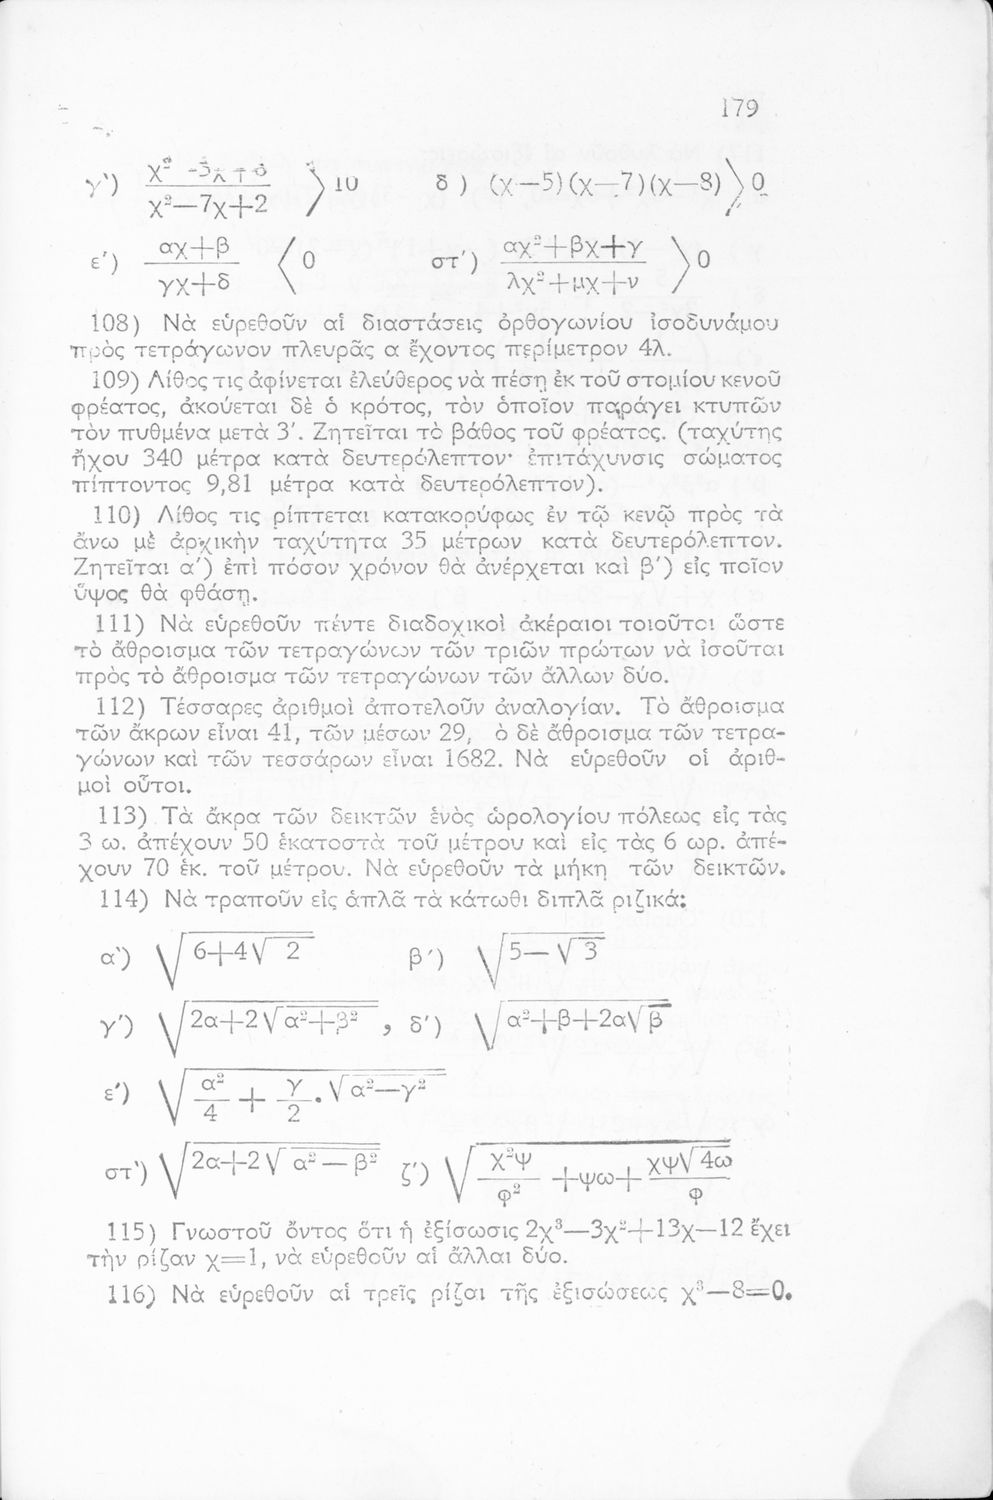 179
γ') χ²-5χ+6 / χ²—7χ+2 > 10 δ) (χ—5)(χ—7)(χ—8) > 0
ε') αχ+β / γχ+δ < 0 στ') αχ²+βχ+γ / λχ²+μχ+ν > 0
108) Νὰ εὑρεθοῦν αἱ διαστάσεις ὀρθογωνίου ἰσοδυνάμου
πρὸς τετράγωνον πλευρᾶς α ἔχοντος περίμετρον 4λ.
109) Λίθος τις ἀφίνεται ἐλεύθερος νὰ πέσῃ ἐκ τοῦ στομίου κενοῦ
φρέατος, ἀκούεται δὲ ὁ κρότος, τὸν ὁποῖον παράγει κτυπῶν
τὸν πυθμένα μετὰ 3'. Ζητεῖται τὸ βάθος τοῦ φρέατος. (ταχύτης
ἤχου 340 μέτρα κατὰ δευτερόλεπτον· ἐπιτάχυνσις σώματος
πίπτοντος 9,81 μέτρα κατὰ δευτερόλεπτον).
110) Λίθος τις ρίπτεται κατακορύφως ἐν τῷ κενῷ πρὸς τὰ
ἄνω μὲ ἀρχικὴν ταχύτητα 35 μέτρων κατὰ δευτερόλεπτον.
Ζητεῖται α') ἐπὶ πόσον χρόνον θὰ ἀνέρχεται καὶ β') εἰς ποῖον
ὕψος θὰ φθάσῃ.
111) Νὰ εὑρεθοῦν πέντε διαδοχικοὶ ἀκέραιοι τοιοῦτοι ὥστε
τὸ ἄθροισμα τῶν τετραγώνων τῶν τριῶν πρώτων νὰ ἰσοῦται
πρὸς τὸ ἄθροισμα τῶν τετραγώνων τῶν ἄλλων δύο.
112) Τέσσαρες ἀριθμοὶ ἀποτελοῦν ἀναλογίαν. Τὸ ἄθροισμα
τῶν ἄκρων εἶναι 41, τῶν μέσων 29, ὁ δὲ ἄθροισμα τῶν τετρα-
γώνων καὶ τῶν τεσσάρων εἶναι 1682. Νὰ εὑρεθοῦν οἱ ἀριθ-
μοὶ οὗτοι.
113) Τὰ ἄκρα τῶν δεικτῶν ἑνὸς ὡρολογίου πόλεως εἰς τὰς
3 ω. ἀπέχουν 50 ἑκατοστὰ τοῦ μέτρου καὶ εἰς τὰς 6 ωρ. ἀπέ-
χουν 70 ἑκ. τοῦ μέτρου. Νὰ εὑρεθοῦν τὰ μήκη τῶν δεικτῶν.
114) Νὰ τραποῦν εἰς ἁπλᾶ τὰ κάτωθι διπλᾶ ριζικά:
α') √(6+4√2) β') √(5—√3)
γ') √(2α+2√(α²+β²)) , δ') √(α²+β+2α√β)
ε') √(α²/4 + γ/2 . √(α²—γ²))
στ') √(2α+2√(α²—β²)) ζ') √(χ²ψ/φ² +ψω+ χψ√4ω/φ)
115) Γνωστοῦ ὄντος ὅτι ἡ ἐξίσωσις 2χ³—3χ²+13χ—12 ἔχει
τὴν ρίζαν χ=1, νὰ εὑρεθοῦν αἱ ἄλλαι δύο.
116) Νὰ εὑρεθοῦν αἱ τρεῖς ρίζαι τῆς ἐξισώσεως χ³—8=0.